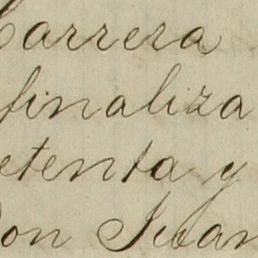 Carrera
finaliza
etenta y
Don Juan